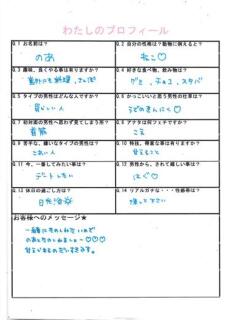 わたしのプロフィール
Q.1 お名前は？
のあ
Q.2 自分の性格は？動物に例えると？
ねこ♡
Q.3 趣味、良くやる事は有りますか？
意外にも料理、
Q.4 好きな食べ物、飲み物は？
グミ、チョコ、スタバ
Q.5 タイプの男性はどんな人ですか？
優しい人
Q.6 かっこいいと思う男性の仕草は？
うでのきんにく♡
Q.7 初対面の男性へ思わず見てしまう所？
Q.8 アナタは何フェチですか？
こえ
Q.9 苦手な、嫌いなタイプの男性は？
こわい人
Q.10 特技、得意な事は有りますか？
甘えること
Q.11 今、一番してみたい事は？
デートしたい
Q.12 男性から、されて嬉しい事は？
はぐ♡
Q.13 休日の過ごし方は？
日光浴
Q.14 リアルガチな・・・性感帯は？
探して下さい
お客様へのメッセージ★
一緒にたのしみたいので
のあとたのしみましょー♡♡♡
甘えんぼなのでだいすきです。